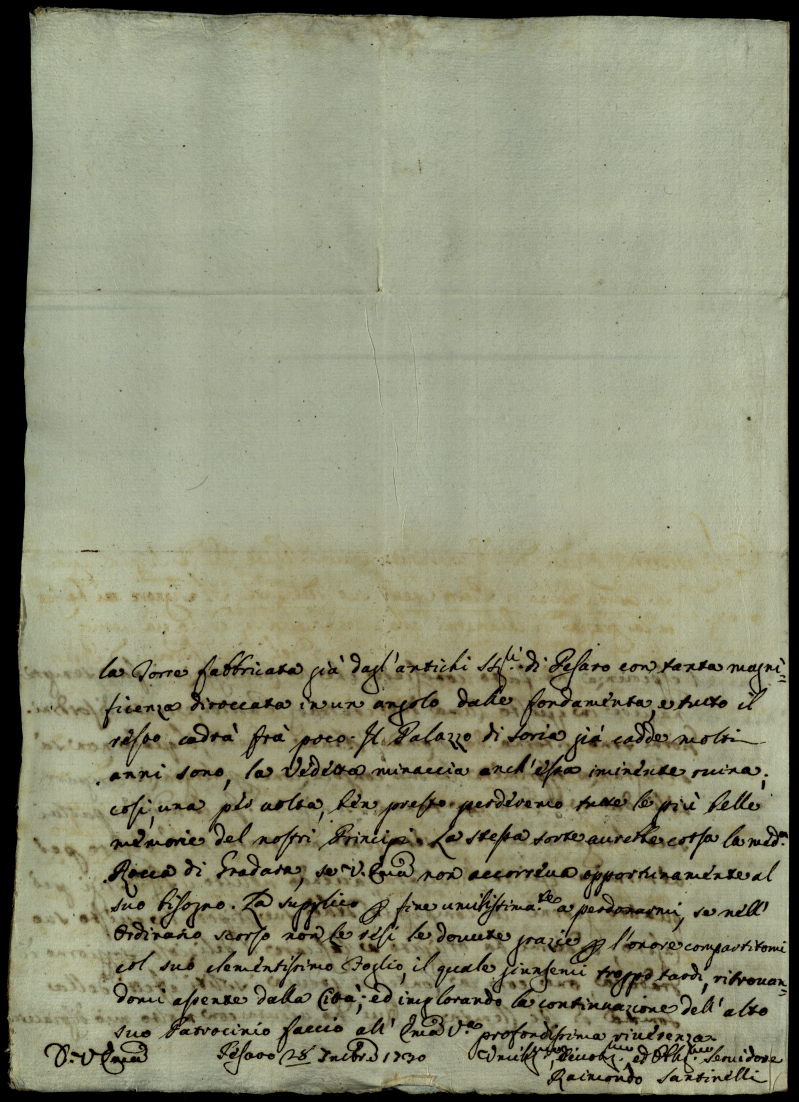 la Torre fabbricata già dagl'antichi SSri: di Pesaro con tanta magni=
ficenza diroccata in un angolo dalle fondamenta, e tutto il
resto cadrà frà poco. Il Palazzo di Soria già cadde molti
anni sono, la Vedetta minaccia anch'essa iminente ruina;
così, una per volta, ben presto perderemo tutte le più belle
memorie del nostri Principi. La stessa sorte aurebbe corsa la med.ma
Rocca di Gradara, se V. Emza non accorreva opportunamente al
suo bisogno. La supplico p fine umilissima.te a perdonarmi, se nell'
Ordinario scorso non Le resi le dovute grazie p l'onore compartitomi
col suo clementissimo Foglio, il quale giunsemi troppo tardi, ritrovan=
domi assente dalla Città; ed implorando la continuazione dell'alto
suo Patrocinio faccio all'Emza V.ra profondissima riverenza
D. V. Emza Pesaro 28 1730 Umilis.mo, Divotis.mo, ed Obblig.mo Servidore
Raimondo Santinelli